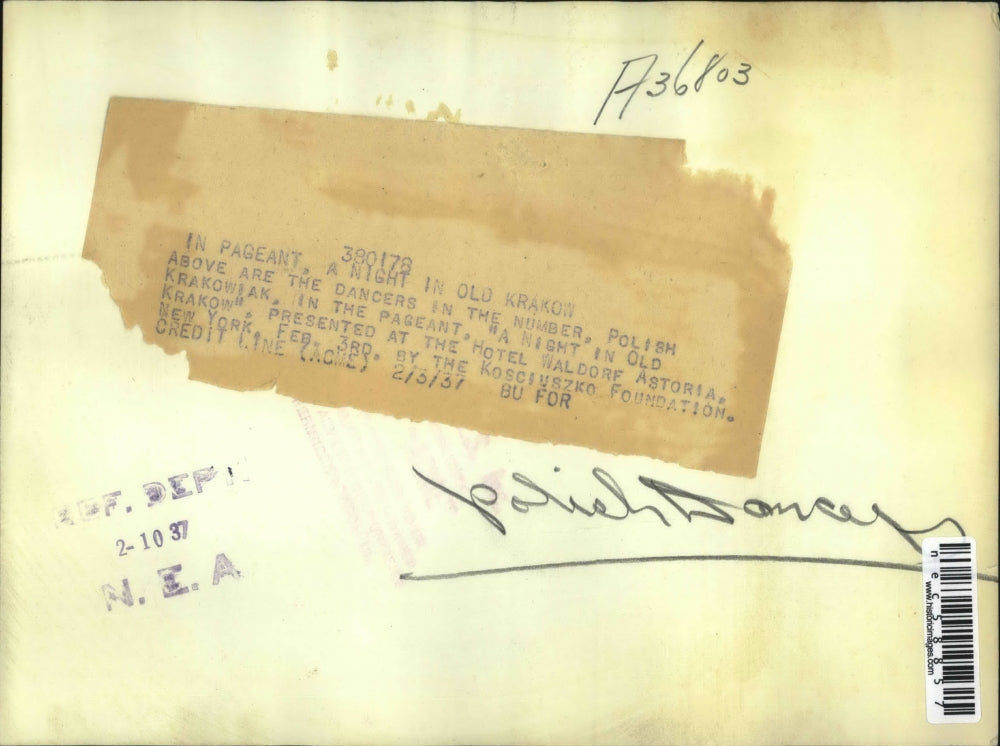 A36803
380178
IN PAGEANT, A NIGHT IN OLD KRAKOW
ABOVE ARE THE DANCERS IN THE NUMBER, POLISH
KRAKOWIAK, IN THE PAGEANT, "A NIGHT IN OLD
KRAKOW", PRESENTED AT THE HOTEL WALDORF ASTORIA,
NEW YORK, FEB. 3RD. BY THE KOSCIUSZKO FOUNDATION.
CREDIT LINE (ACME) 2/5/37 BU FOR
Polish Dancers
REF. DEPT.
2-10 37
N. E. A
nec58857
www.historicimages.com